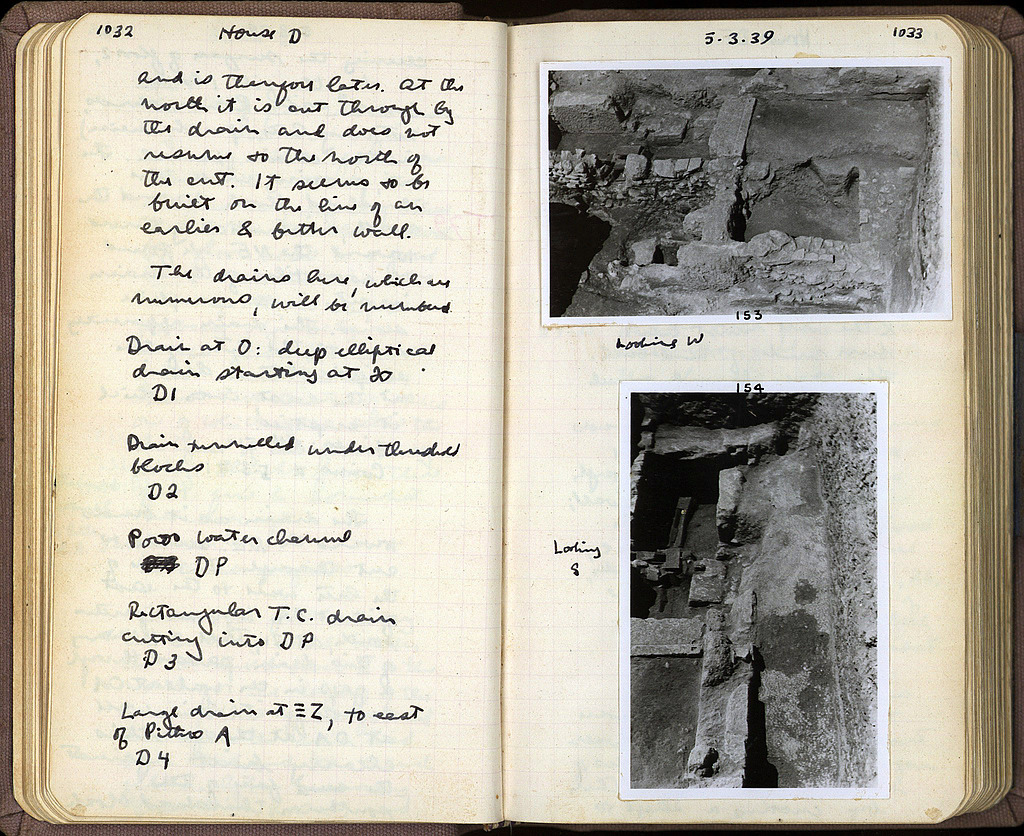 1032
House D
and is therefore later. At the
north it is cut through by
the drain and does not
resume to the north of
the cut. It seems to be
built on the line of an
earlier & better wall.
The drains here, which are
numerous, will be numbered
Drain at O: deep elliptical
drain starting at
D1
Drain tunnelled under threshold
blocks
D2
Poros water channel
DP
Rectangular T.C. drain
cutting into DP
D3
Large drain at ΞZ, to east
of Pithos A
D4
5·3·39
1033
153
Looking W
154
Looking
S